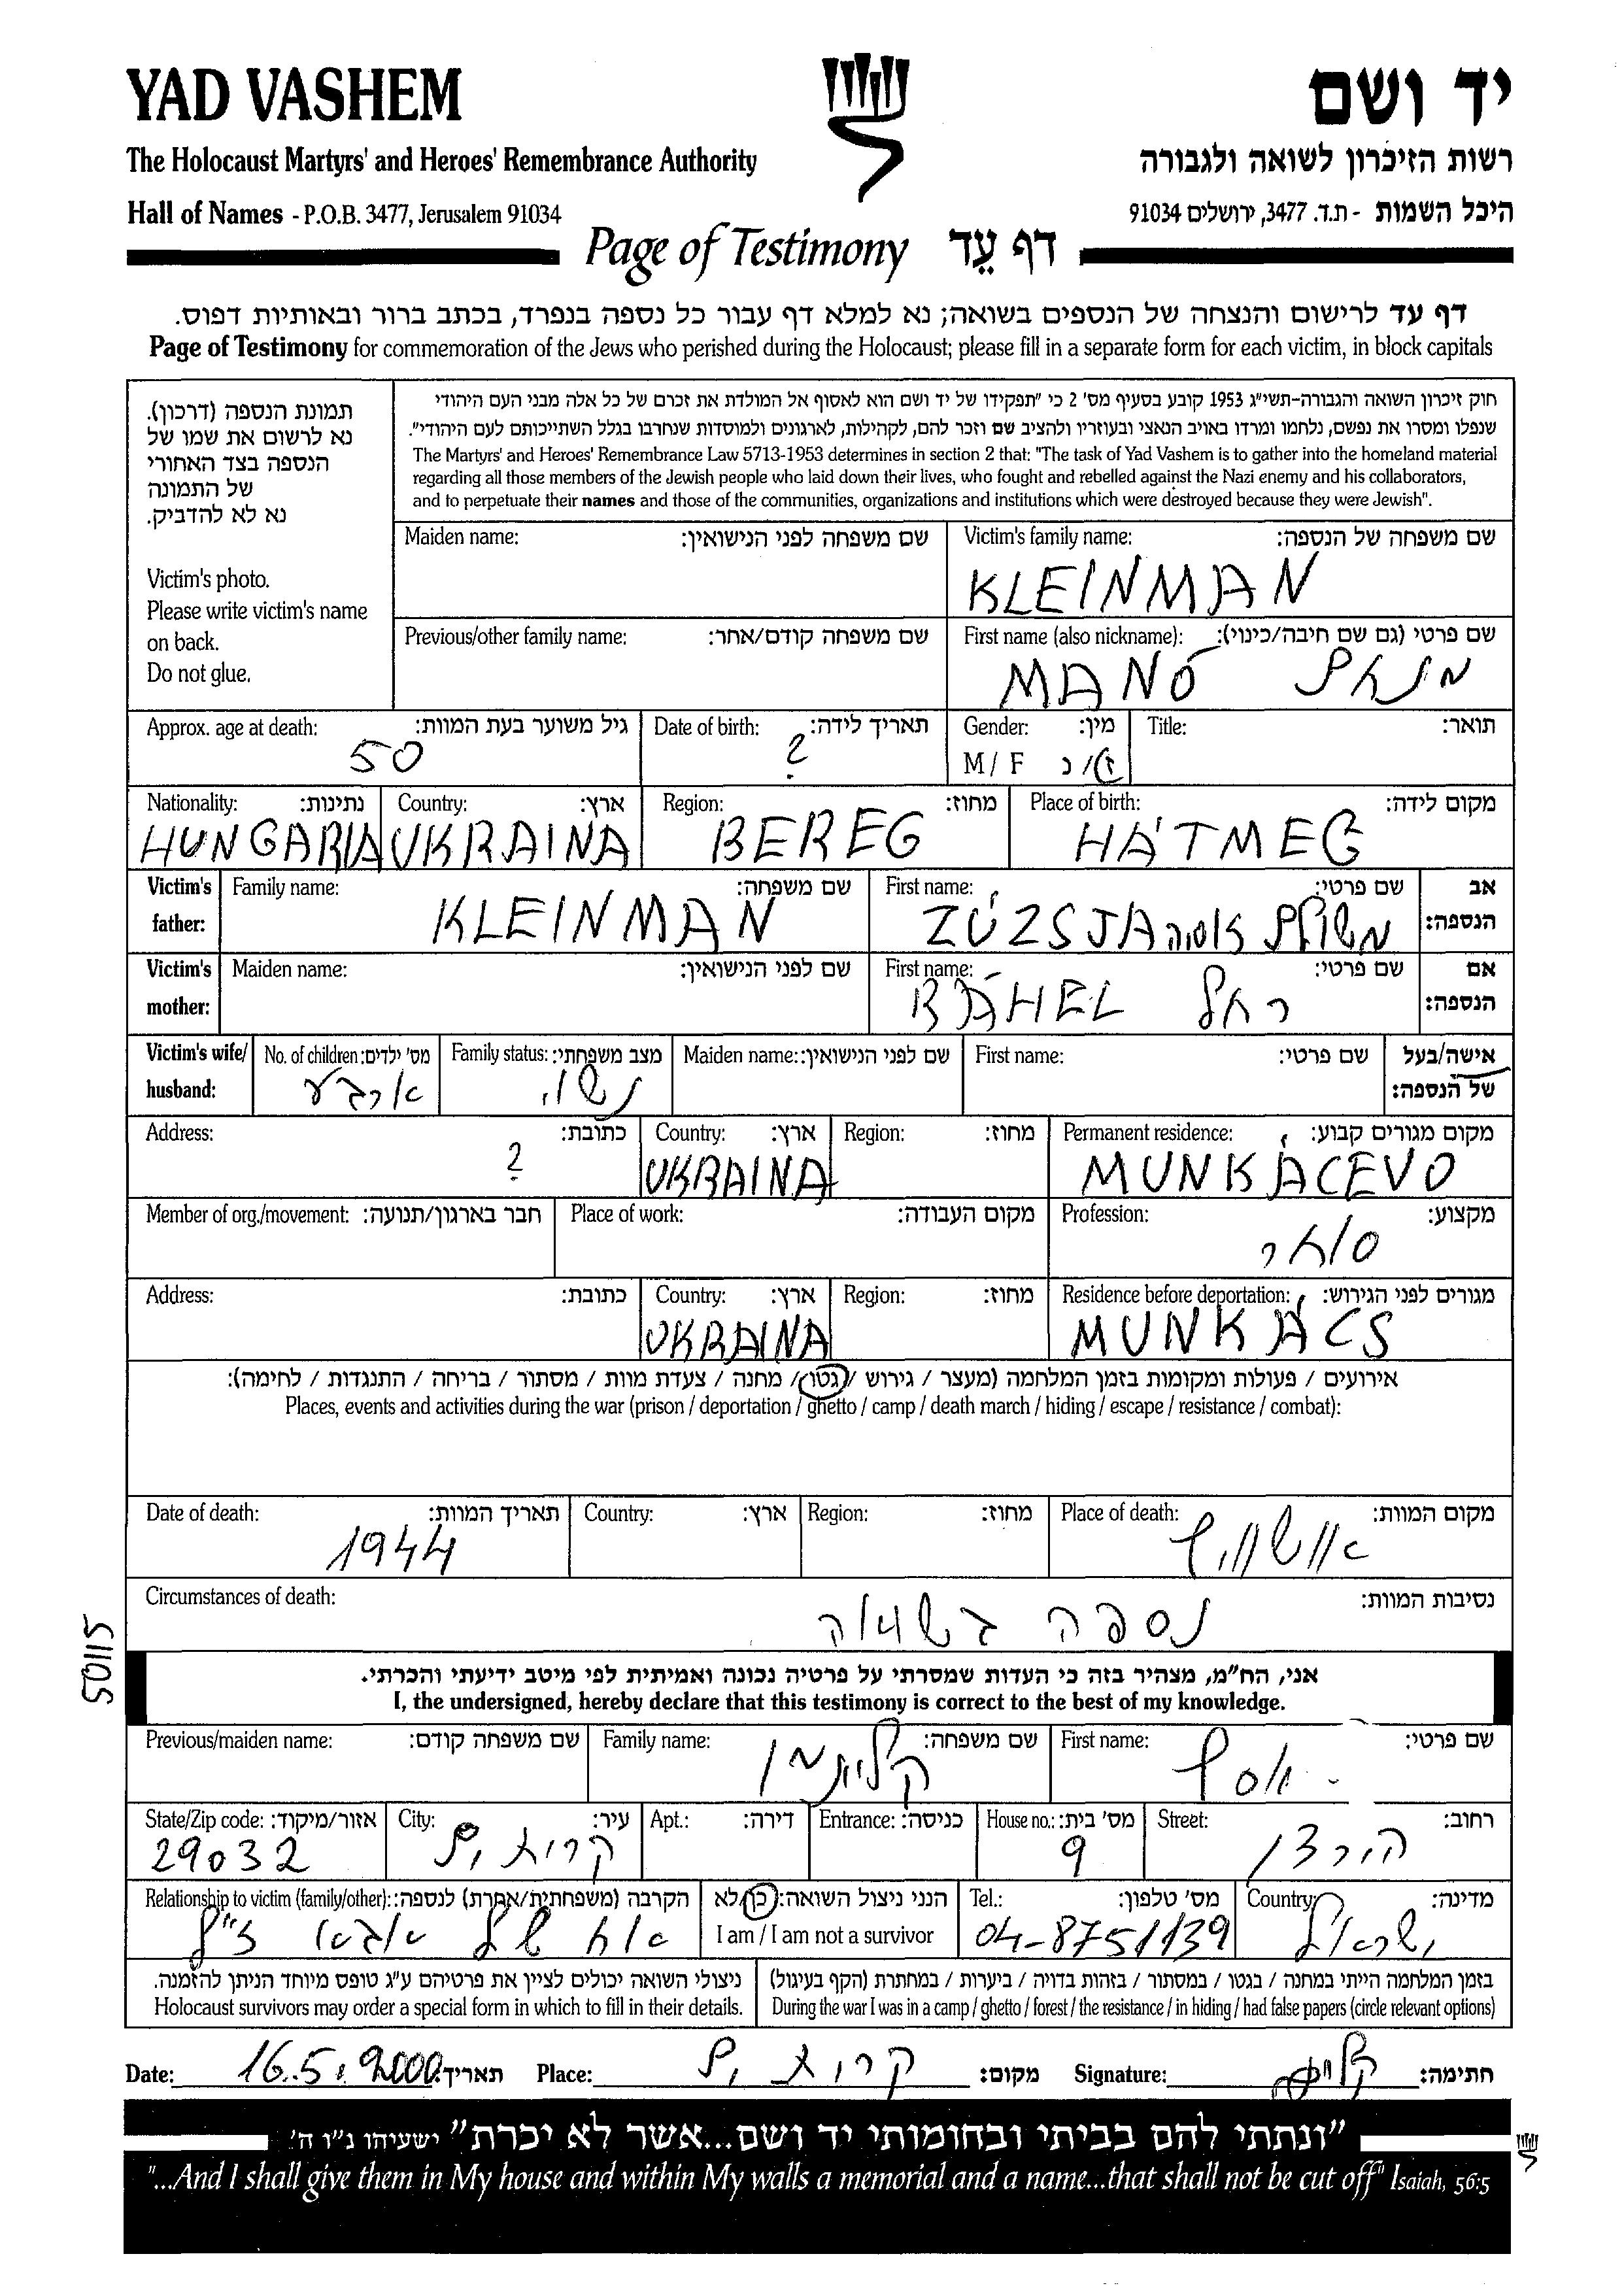 YAD VASHEM
יד ושם
The Holocaust Martyrs' and Heroes' Remembrance Authority
רשות הזיכרון לשואה ולגבורה
Hall of Names - P.O.B. 3477, Jerusalem 91034
היכל השמות - ת.ד. 3477, ירושלים 91034
Page of Testimony דף עֵד
דף עד לרישום והנצחה של הנספים בשואה; נא למלא דף עבור כל נספה בנפרד, בכתב ברור ובאותיות דפוס.
Page of Testimony for commemoration of the Jews who perished during the Holocaust; please fill in a separate form for each victim, in block capitals
תמונת הנספה (דרכון).
נא לרשום את שמו של
הנספה בצד האחורי
של התמונה
נא לא להדביק.
Victim's photo.
Please write victim's name
on back.
Do not glue.
חוק זיכרון השואה והגבורה-תשי"ג 1953 קובע בסעיף מס' 2 כי "תפקידו של יד ושם הוא לאסוף אל המולדת את זכרם של כל אלה מבני העם היהודי
שנפלו ומסרו את נפשם, נלחמו ומרדו באויב הנאצי ובעוזריו ולהציב שם וזכר להם, לקהילות, לארגונים ולמוסדות שנחרבו בגלל השתייכותם לעם היהודי".
The Martyrs' and Heroes' Remembrance Law 5713-1953 determines in section 2 that: "The task of Yad Vashem is to gather into the homeland material
regarding all those members of the Jewish people who laid down their lives, who fought and rebelled against the Nazi enemy and his collaborators,
and to perpetuate their names and those of the communities, organizations and institutions which were destroyed because they were Jewish".
Maiden name: שם משפחה לפני הנישואין: Victim's family name: שם משפחה של הנספה:
KLEINMAN
Previous/other family name: שם משפחה קודם/אחר: First name (also nickname): שם פרטי (גם שם חיבה/כינוי):
MANÓ מנחם
Approx. age at death: גיל משוער בעת המוות: Date of birth: תאריך לידה: Gender: מין: Title: תואר:
50 ? M / F ז/נ
Nationality: נתינות: Country: ארץ: Region: מחוז: Place of birth: מקום לידה:
HUNGARIA UKRAINA BEREG HÁTMEG
Victim's father: Family name: שם משפחה: First name: שם פרטי: אב הנספה:
KLEINMAN ZÚZSJA זוסיה משולם
Victim's mother: Maiden name: שם לפני הנישואין: First name: שם פרטי: אם הנספה:
RÁHEL רחל
Victim's wife/ husband: No. of children: מס' ילדים: Family status: מצב משפחתי: Maiden name: שם לפני הנישואין: First name: שם פרטי: אישה/בעל של הנספה:
ארבע נשוי
Address: כתובת: Country: ארץ: Region: מחוז: Permanent residence: מקום מגורים קבוע:
? UKRAINA MUNKÁCEVO
Member of org./movement: חבר בארגון/תנועה: Place of work: מקום העבודה: Profession: מקצוע:
סוחר
Address: כתובת: Country: ארץ: Region: מחוז: Residence before deportation: מגורים לפני הגירוש:
UKRAINA MUNKÁCS
אירועים / פעולות ומקומות בזמן המלחמה (מעצר / גירוש / גטו / מחנה / צעדת מוות / מסתור / בריחה / התנגדות / לחימה):
Places, events and activities during the war (prison / deportation / ghetto / camp / death march / hiding / escape / resistance / combat):
Date of death: תאריך המוות: Country: ארץ: Region: מחוז: Place of death: מקום המוות:
1944 אושוויץ
Circumstances of death: נסיבות המוות:
נספה בשואה
50115
אני, הח"מ, מצהיר בזה כי העדות שמסרתי על פרטיה נכונה ואמיתית לפי מיטב ידיעתי והכרתי.
I, the undersigned, hereby declare that this testimony is correct to the best of my knowledge.
Previous/maiden name: שם משפחה קודם: Family name: שם משפחה: First name: שם פרטי:
קליינמן
State/Zip code: אזור/מיקוד: City: עיר: Apt.: דירה: Entrance: כניסה: House no.: מס' בית: Street: רחוב:
29032 קרית ים 9 הירדן
Relationship to victim (family/other): הקרבה (משפחתית/אחרת) לנספה: הנני ניצול השואה: כן/לא Tel.: מס' טלפון: Country: מדינה:
I am / I am not a survivor
אח של אבא ז"ל 04-8751139 ישראל
ניצולי השואה יכולים לציין את פרטיהם ע"ג טופס מיוחד הניתן להזמנה.
Holocaust survivors may order a special form in which to fill in their details.
בזמן המלחמה הייתי במחנה / בגטו / במסתור / בזהות בדויה / ביערות / במחתרת (הקף בעיגול)
During the war I was in a camp / ghetto / forest / the resistance / in hiding / had false papers (circle relevant options)
Date: 16.5.2000 תאריך: Place: קרית ים מקום: Signature: חתימה:
"ונתתי להם בביתי ובחומותי יד ושם...אשר לא יכרת" ישעיהו נ"ו ה'
"...And I shall give them in My house and within My walls a memorial and a name...that shall not be cut off" Isaiah, 56:5